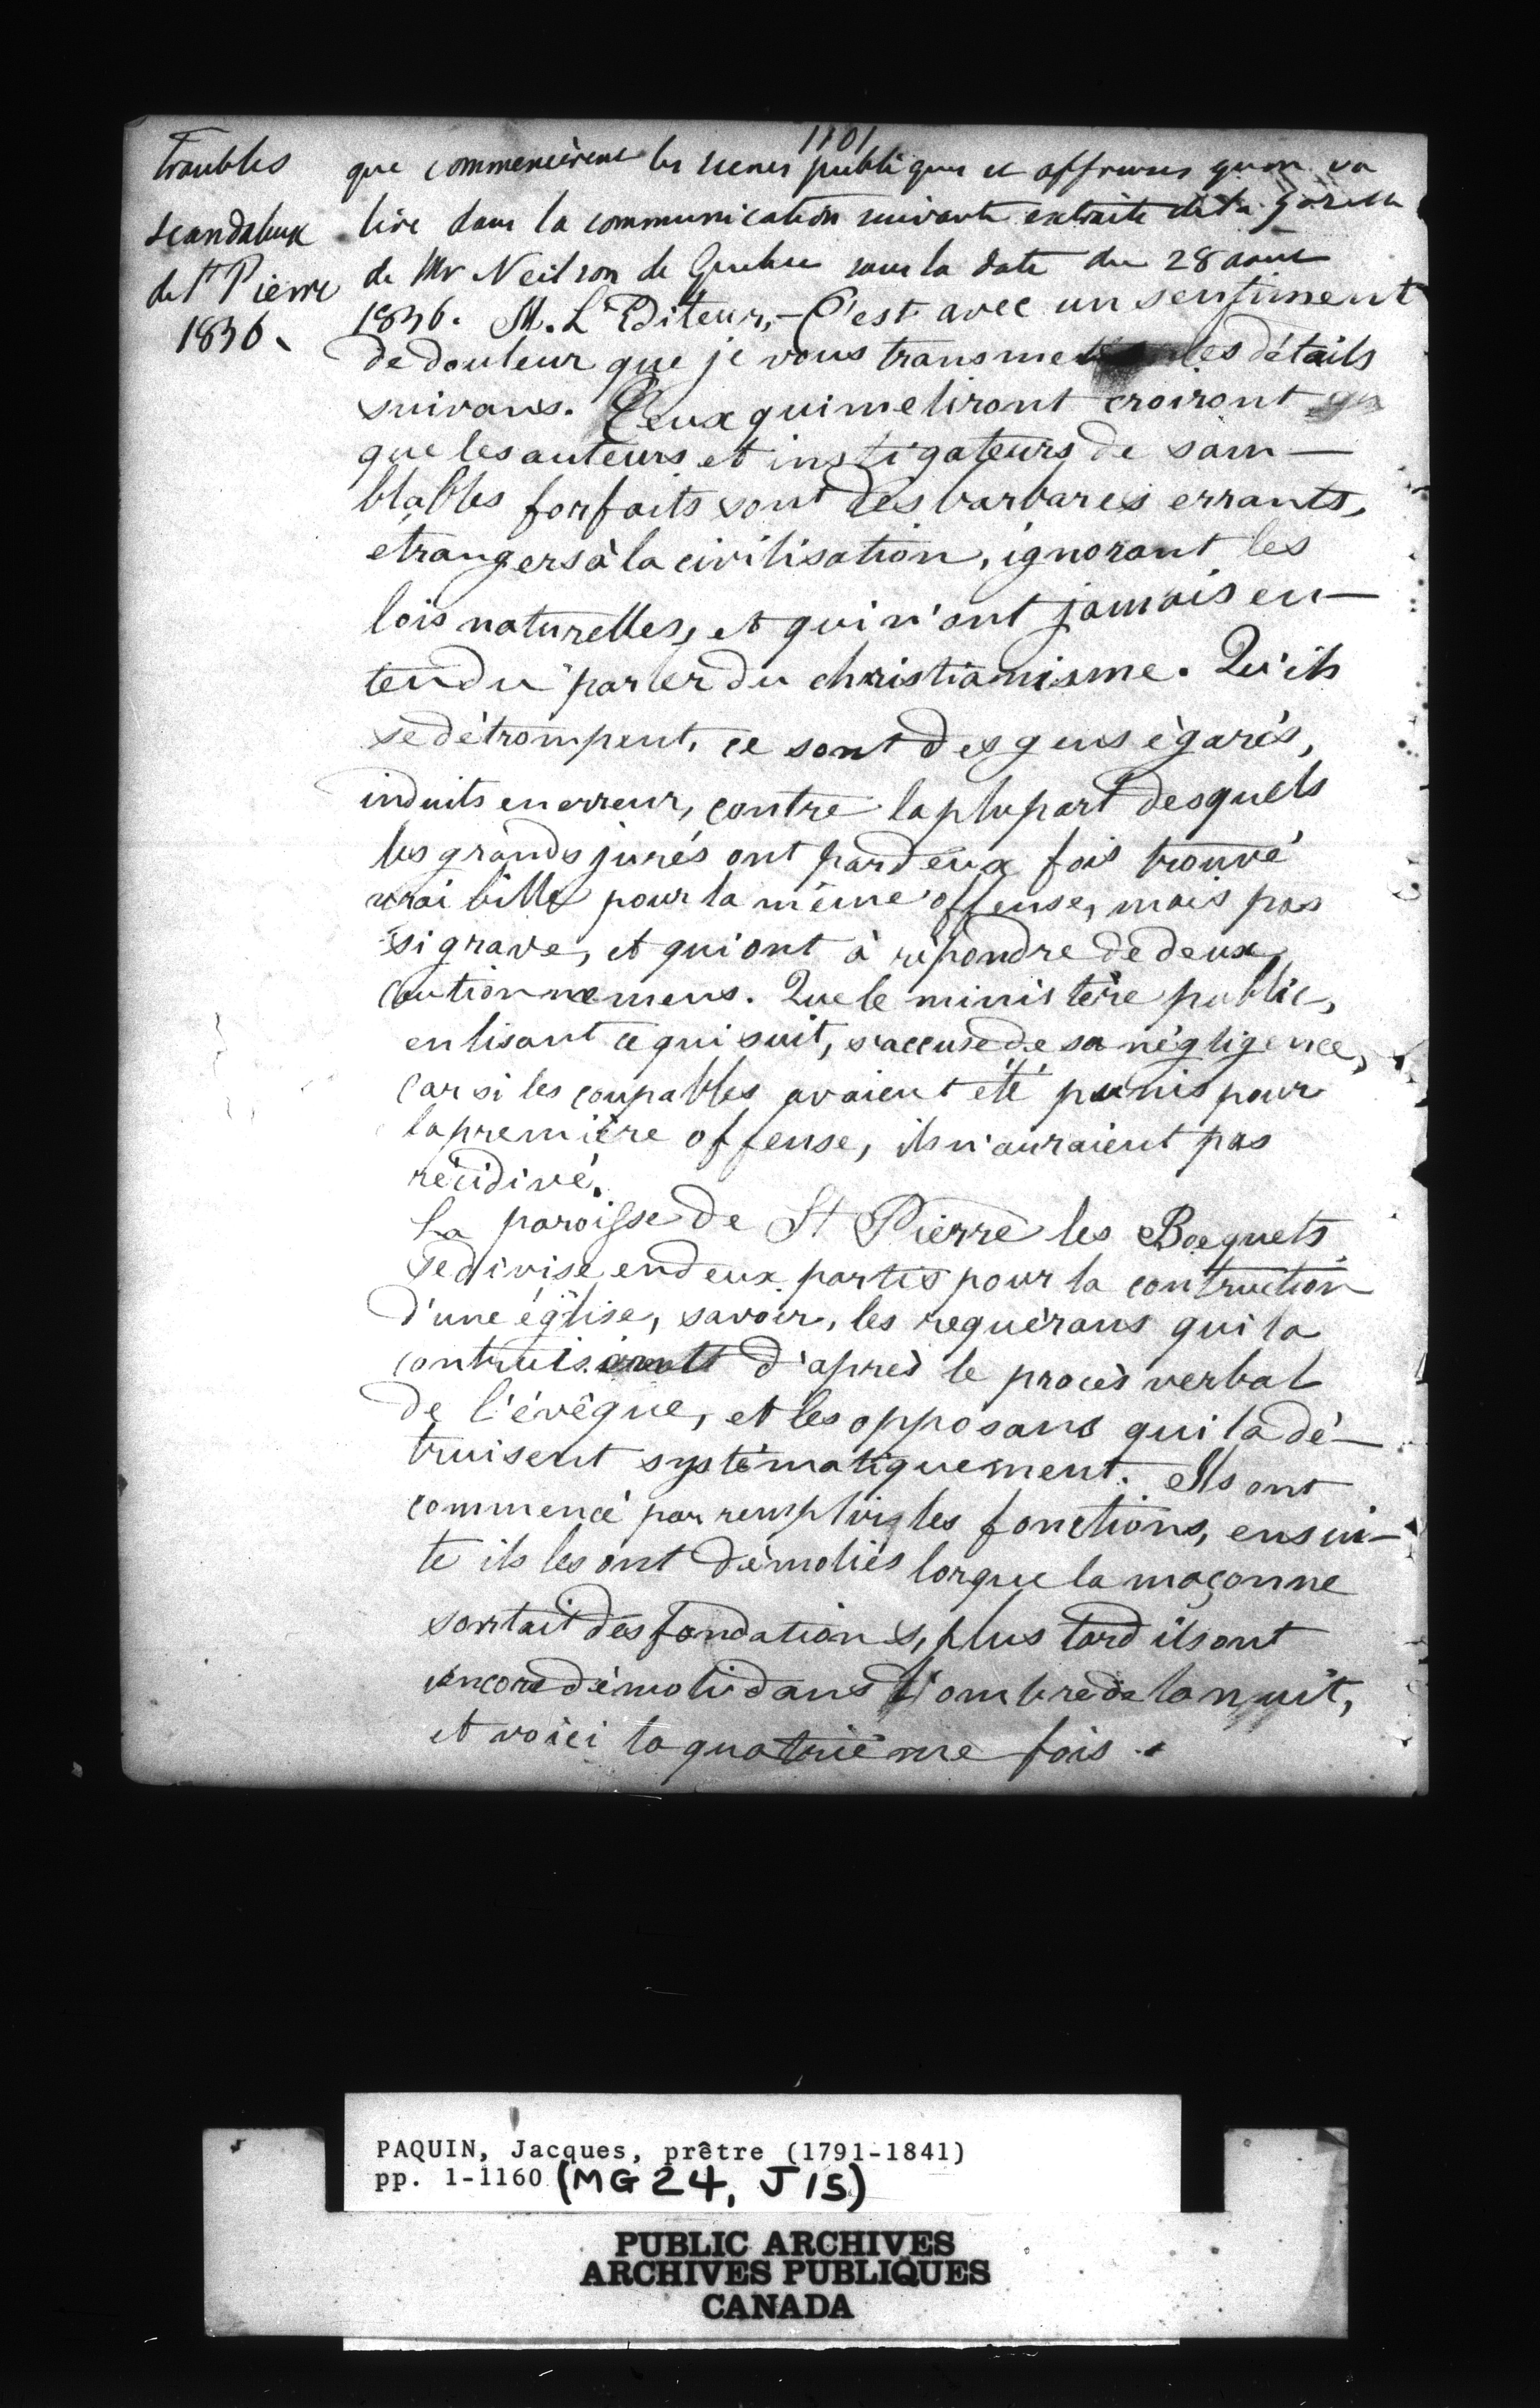 1101
Troubles
scandaleux
de St Pierre
1836.
que commencèrent les scenes publiques et affreuses qu'on va
lire dans la communication suivante extraite de la gazette
de Mr Neilson de Quebec sous la date du 28 aout
1836. M. L'Editeur,- C'est avec un sentiment
de douleur que je vous transmets les détails
suivans. Ceux qui me liront croiront
que les auteurs et instigateurs de sam-
blables forfaits sont des barbares errants,
etrangers à la civilisation, ignorant les
lois naturelles, et qui n'ont jamais en-
tendu parler du christianisme. Qu'ils
se détrompent, ce sont des gens ègarés,
induits en erreur, contre la plupart desquels
les grands jurés ont par deux fois trouvé
vrai bille pour la même offense, mais pas
si grave, et qui ont à répondre de deux
cautionnemens. Que le ministère public,
en lisant ce qui suit, s'accuse de sa négligence,
car si les coupables avaient été punis pour
la première offense, ils n'auraient pas
récidivé.
La paroisse de St Pierre les Becquets
se divise en deux partis pour la contruction
d'une église, savoir, les requérans qui la
contruisent d'après le procès verbal
de l'évêque, et les opposans qui la dé-
truisent systématiquement. Ils ont
commencé par remplir les fonctions, ensui-
te ils les ont démoliés lorque la maçonne
sortait des fondations, plus tard ils ont
encore démoli dans l'ombre de la nuit,
et voici la quatrième fois.
PAQUIN, Jacques, prêtre (1791-1841)
pp. 1-1160 (MG 24, J 15)
PUBLIC ARCHIVES
ARCHIVES PUBLIQUES
CANADA